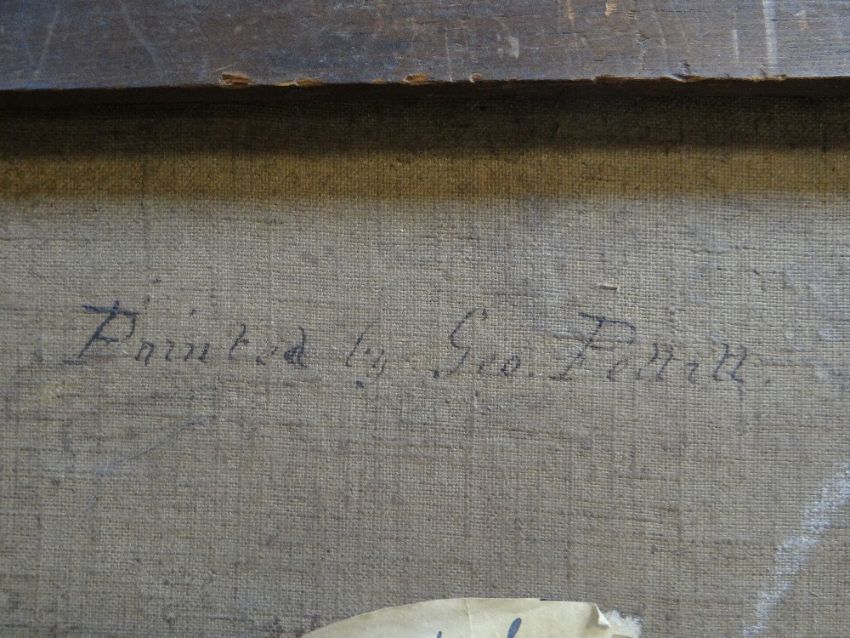 Painted by Geo. Pettitt.